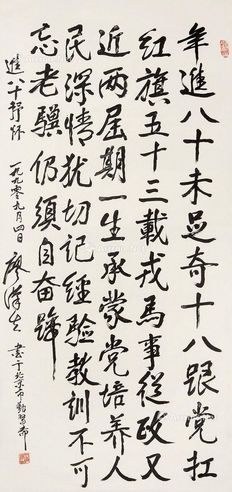 年進八十未足奇十八跟党扛
红旗五十三載戎馬事從政又
近两屆期一生承蒙党培养人
民深情犹切记经验教训不可
忘老骥仍须自奋蹄
進八十抒怀 一九九〇年九月四日 廖漢生 書于北京市